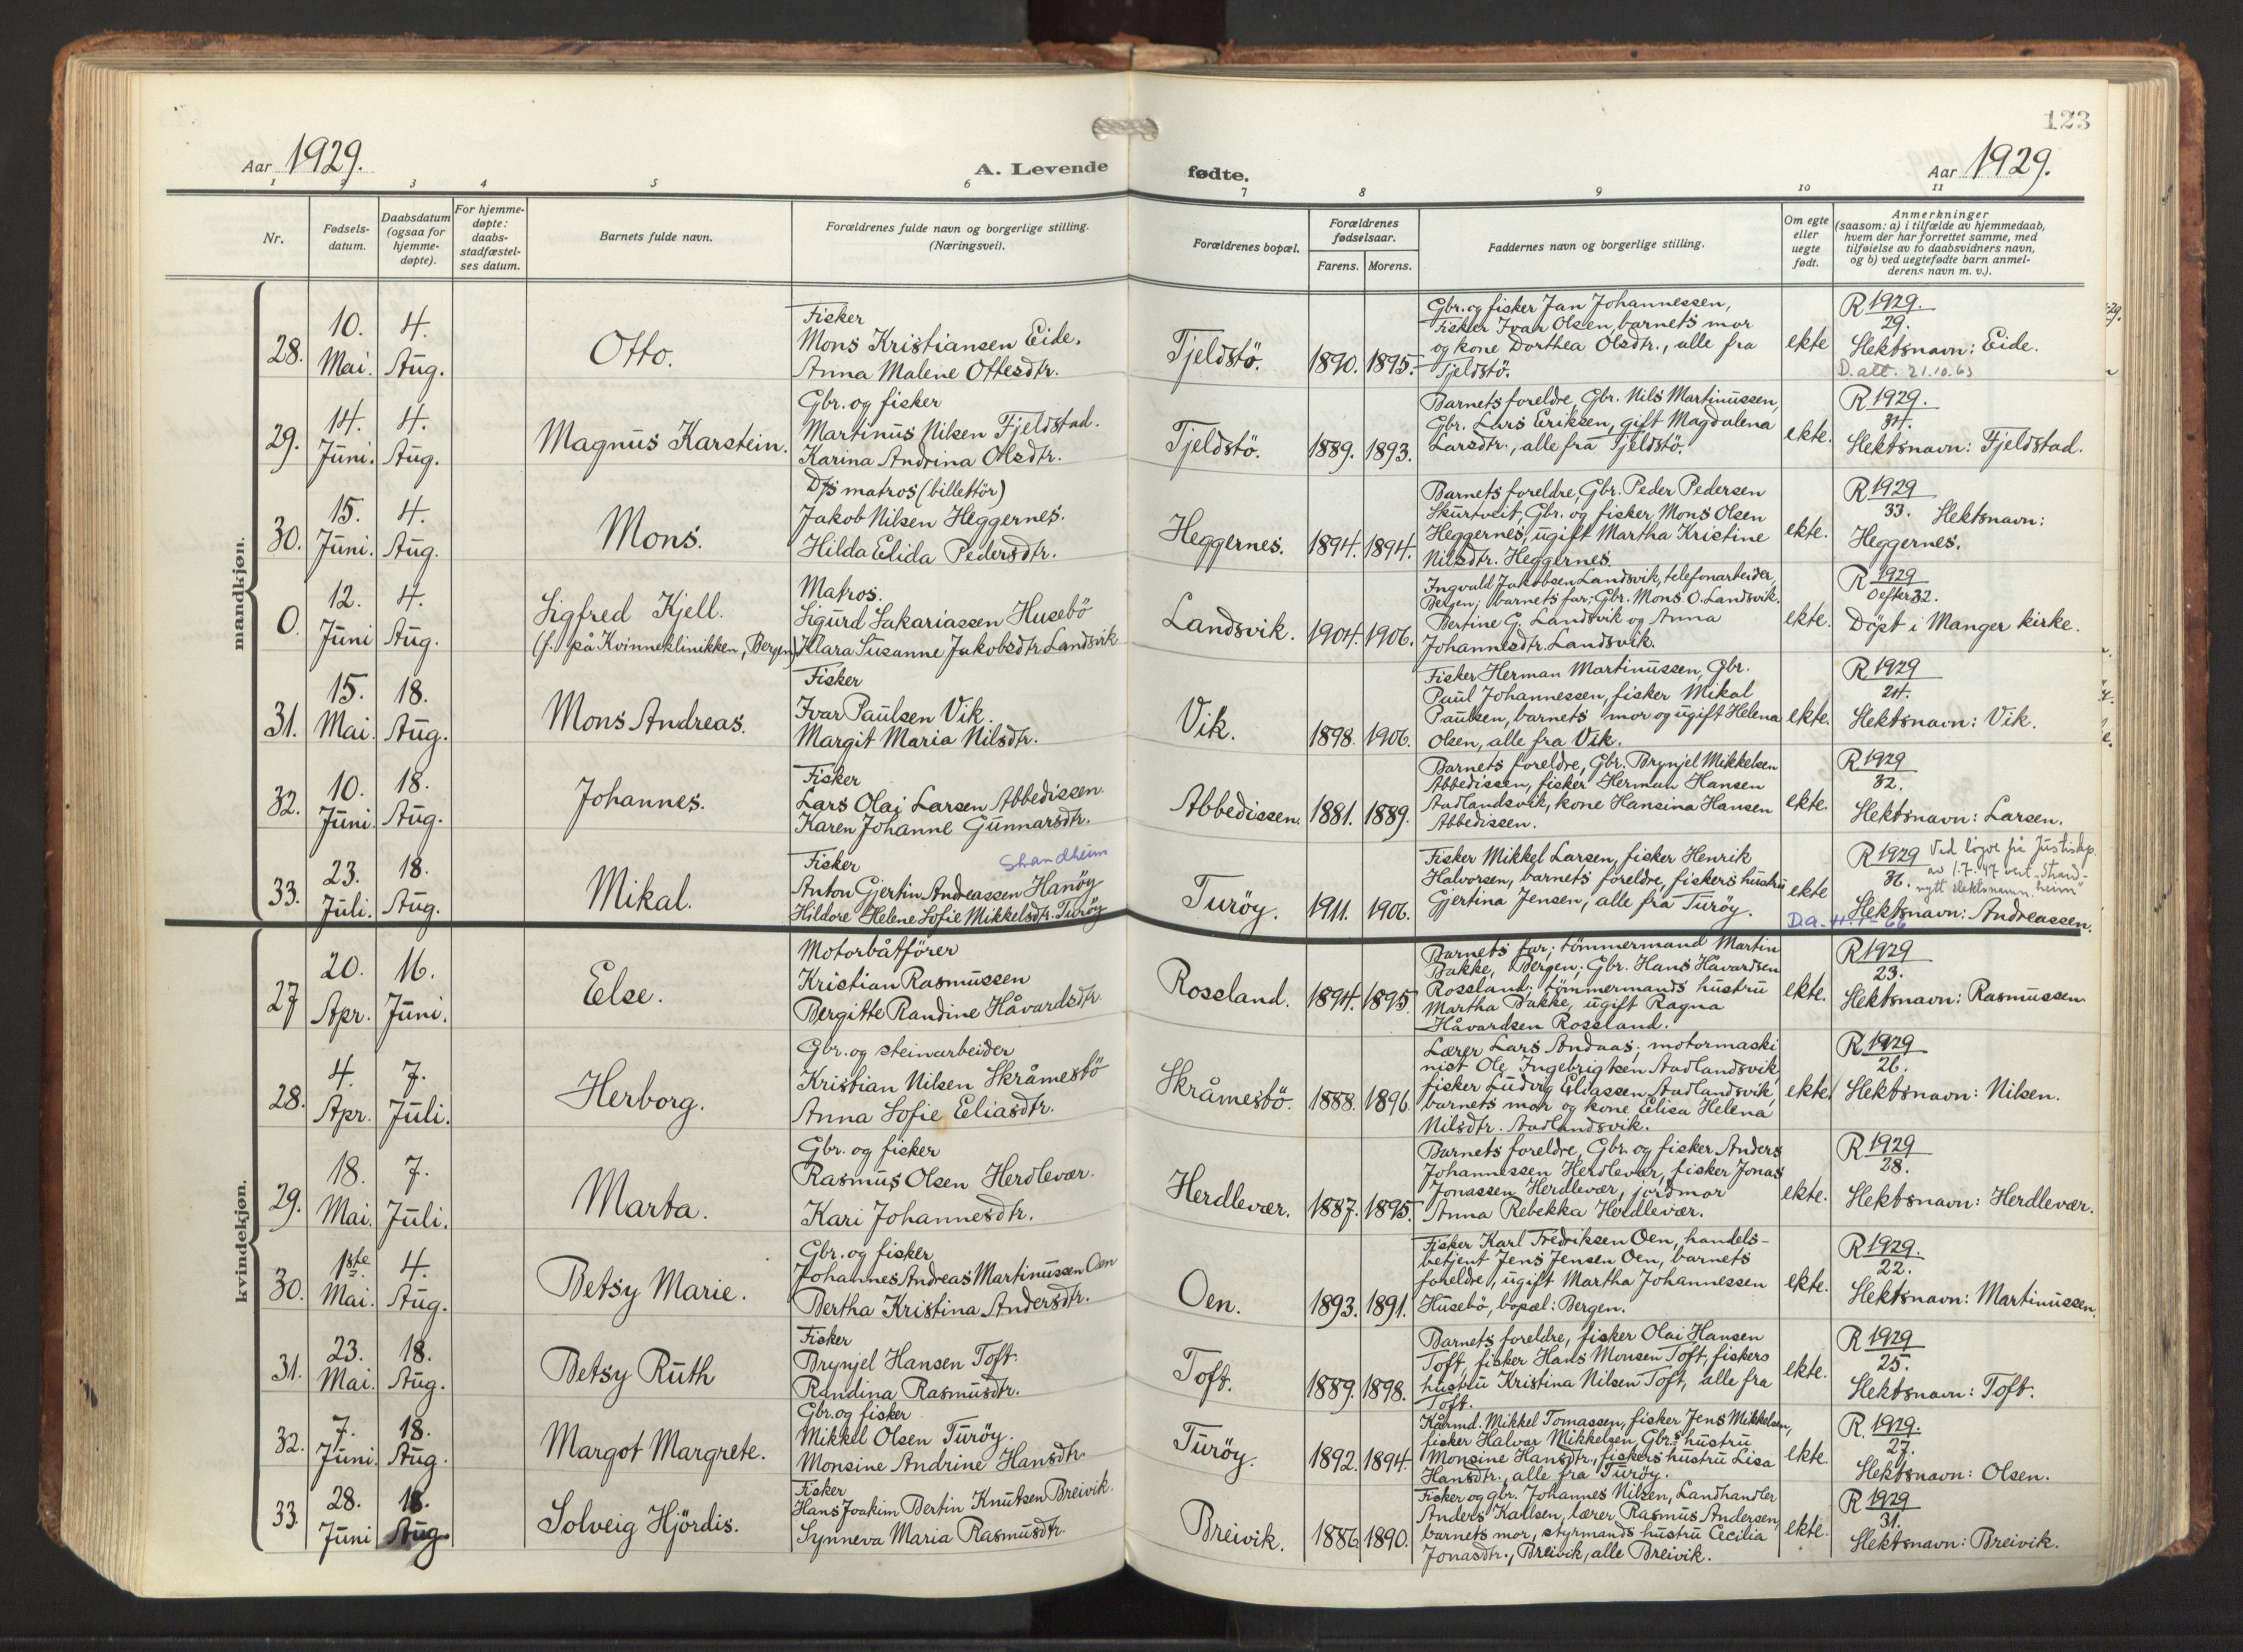 123
Aar 1929.
A. Levende fødte.
Aar 1929.
1 2 3 4 5 6 7 8 9 10 11
Nr.
Fødsels-
datum.
Daabsdatum
(ogsaa for
hjemme-
døpte).
For hjemme-
døpte:
daabs-
stadfæstel-
ses datum.
Barnets fulde navn.
Forældrenes fulde navn og borgerlige stilling.
(Næringsvei).
Forældrenes bopæl.
Forældrenes
fødselsaar.
Farens. Morens.
Faddernes navn og borgerlige stilling.
Om egte
eller
uegte
født.
Anmerkninger
(saasom: a) i tilfælde av hjemmedaab,
hvem der har forrettet samme, med
tilføielse av to daabsvidners navn,
og b) ved uegtefødte barn anmel-
derens navn m. v.).
mandkjøn.
28.
10.
Mai.
4.
Aug.
Otto.
Fisker
Mons Kristiansen Eide.
Anna Malene Ottesdtr.
Tjeldstö.
1890. 1895.
Gbr. og fisker Jan Johannessen,
Fisker Ivar Olsen, barnets mor
og kone Dorthea Olsdtr., alle fra
Tjeldstö.
ekte
R 1929.
29.
Slektsnavn: Eide.
D. att. 21.10.63
29.
14.
Juni.
4.
Aug.
Magnus Karstein.
Gbr. og fisker
Martinus Nilsen Fjeldstad.
Karina Andrina Olsdtr.
Tjeldstö.
1889. 1893.
Barnets foreldre, Gbr. Nils Martinussen,
Gbr. Lars Eriksen, gift Magdalena
Larsdtr., alle fra Tjeldstö.
ekte.
R 1929.
34.
Slektsnavn: Fjeldstad.
30.
15.
Juni.
4.
Aug.
Mons.
D/s matros (billettör)
Jakob Nilsen Heggernes.
Hilda Elida Pedersdtr.
Heggernes.
1894. 1894.
Barnets foreldre, Gbr. Peder Pedersen
Skurtveit, Gbr. og fisker Mons Olsen
Heggernes, ugift Martha Kristine
Nilsdtr. Heggernes.
ekte.
R 1929
33. Slektsnavn:
Heggernes.
0.
12.
Juni
4.
Aug.
Sigfred Kjell.
(f. på Kvinneklinikken, Bergen)
Matros.
Sigurd Sakariassen Husebö
Klara Susanne Jakobsdtr. Landsvik
Landsvik.
1904. 1906.
Ingvald Jakobsen Landsvik, telefonarbeider,
Bergen; barnets far; Gbr. Mons O. Landsvik.
Bertine G. Landsvik og Anna
Johannesdtr. Landsvik.
ekte.
R 1929
0 efter 32.
Döpt i Manger kirke.
31.
15.
Mai.
18.
Aug.
Mons Andreas.
Fisker
Ivar Paulsen Vik.
Margit Maria Nilsdtr.
Vik.
1898. 1906.
Fisker Herman Martinussen, Gbr.
Paul Johannessen, fisker Mikal
Paulsen, barnets mor og ugift Helena
Olsen, alle fra Vik.
ekte.
R 1929
24.
Slektsnavn: Vik.
32.
10.
Juni.
18.
Aug.
Johannes.
Fisker
Lars Olai Larsen Abbedissen.
Karen Johanne Gunnarsdtr.
Abbedissen.
1881. 1889.
Barnets foreldre, Gbr. Brynjel Mikkelsen
Abbedissen, fisker Herman Hansen
Audlandsvik, kone Hansina Hansen
Abbedissen.
ekte.
R 1929
32.
Slektsnavn: Larsen.
33.
23.
Juli.
18.
Aug.
Mikal.
Fisker Strandheim
Anton Gjertin Andreassen Hanöy
Hildore Helene Sofie Mikkelsdtr. Turöy
Turöy.
1911. 1906.
Fisker Mikkel Larsen, fisker Henrik
Halvorsen, barnets foreldre, fiskers hustru
Gjertina Jensen, alle fra Turöy.
ekte
R 1929 Ved løyve frå Justisdep.
36. av 1.7.47 vert "Strand-
nytt slektsnamn. heim"
Slektsnavn: Andreassen.
kvindekjøn.
27
20.
Apr.
16.
Juni.
Else.
Motorbåtförer
Kristian Rasmussen
Bergitte Randine Håvardsdtr.
Rossland.
1894. 1895.
Barnets far; tömmermand Martin
Bakke, Bergen; Gbr. Hans Håvardsen
Rossland; tömmermands hustru
Martha Bakke, ugift Ragna
Håvardsen Rossland.
ekte.
R 1929
23.
Slektsnavn: Rasmussen.
28.
4.
Apr.
7.
Juli.
Herborg.
Gbr. og steinarbeider
Kristian Nilsen Skråmestö
Anna Sofie Eliasdtr.
Skråmestö.
1888. 1896.
Lærer Lars Andaas; motormaski
nist Ole Ingebrigtsen Audlandsvik,
fisker Ludvig Eliassen Audlandsvik,
barnets mor og kone Elisa Helena
Nilsdtr. Audlandsvik.
ekte.
R 1929
26.
Slektsnavn: Nilsen.
29.
18.
Mai.
7.
Juli.
Marta.
Gbr. og fisker
Rasmus Olsen Herdlevær.
Kari Johannesdtr.
Herdlevær.
1887. 1895.
Barnets foreldre, Gbr. og fisker Anders
Johannessen Herdlevær, fisker Jonas
Jonassen Herdlevær, jordmor
Anna Rebekka Herdlevær.
ekte.
R 1929
28.
Slektsnavn: Herdlevær.
30.
1ste
Mai.
4.
Aug.
Betsy Marie.
Gbr. og fisker
Johannes Andreas Martinussen Oen
Bertha Kristina Andersdtr.
Oen.
1893. 1891.
Fisker Karl Fredriksen Oen, handels-
betjent Jens Jensen Oen, barnets
foreldre, ugift Martha Johannessen
Husebö, bopæl: Bergen.
ekte.
R 1929.
22.
Slektsnavn: Martinussen.
31.
23.
Mai.
18.
Aug.
Betsy Ruth
Fisker
Brynjel Hansen Toft.
Randina Rasmusdtr.
Toft.
1889. 1898.
Barnets foreldre, fisker Olai Hansen
Toft, fisker Hans Monsen Toft, fiskers
hustru Kristina Nilsen Toft, alle fra
Toft.
ekte.
R 1929
25.
Slektsnavn: Toft.
32.
7.
Juni.
18.
Aug.
Margot Margrete.
Gbr. og fisker
Mikkel Olsen Turöy.
Monsine Andrine Hansdtr.
Turöy.
1892. 1894.
Kårmd. Mikkel Tomassen, fisker Jens Mikkelsen,
fisker Halvar Mikkelsen, Gbr.s hustru
Monsine Hansdtr., fiskers hustru Lisa
Hansdtr., alle fra Turöy.
ekte.
R 1929.
27.
Slektsnavn: Olsen.
33.
28.
Juni
18.
Aug.
Solveig Hjördis.
Fisker
Hans Joakim Bertin Knutsen Breivik.
Synneva Maria Rasmusdtr.
Breivik.
1886. 1890.
Fisker og gbr. Johannes Nilsen, Landhandler
Anders Karlsen, lærer Rasmus Andersen,
barnets mor, styrmands hustru Cecilia
Jonasdtr., Breivik, alle Breivik.
ekte.
R 1929
31.
Slektsnavn: Breivik.